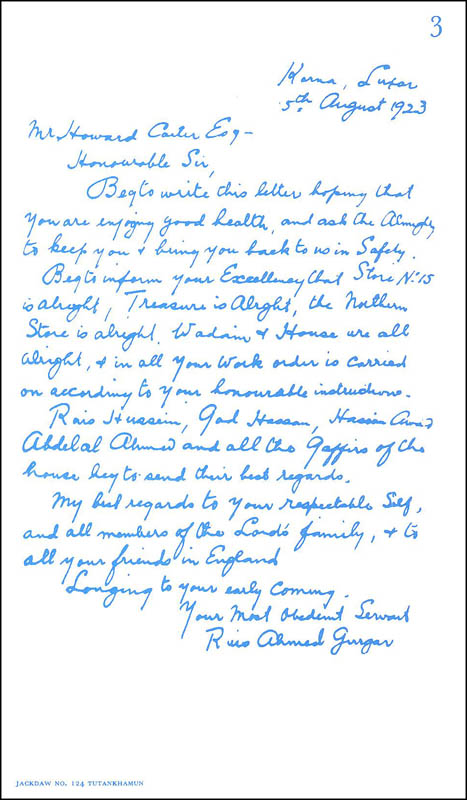 3
Karna, Luxor
5th August 1923
Mr. Howard Carter Esq-
Honourable Sir,
Beg to write this letter hoping that
you are enjoying good health, and ask the Almighty
to keep you & bring you back to us in Safety.
Beg to inform your Excellency that Store No. 15
is alright, Treasure is Alright, the Northern
Store is alright. Wadain & House are all
alright, & in all your work order is carried
on according to your honourable instructions.
Rais Hussein, Gad Hassan, Hassan Awad
Abdelal Ahmed and all the Gaffirs of the
house beg to send their best regards.
My best regards to your respectable Self,
and all members of the Lord's family, & to
all your friends in England
Longing to your early coming.
Your Most Obedient Servant
Rais Ahmed Gurgar
JACKDAW NO. 124 TUTANKHAMUN